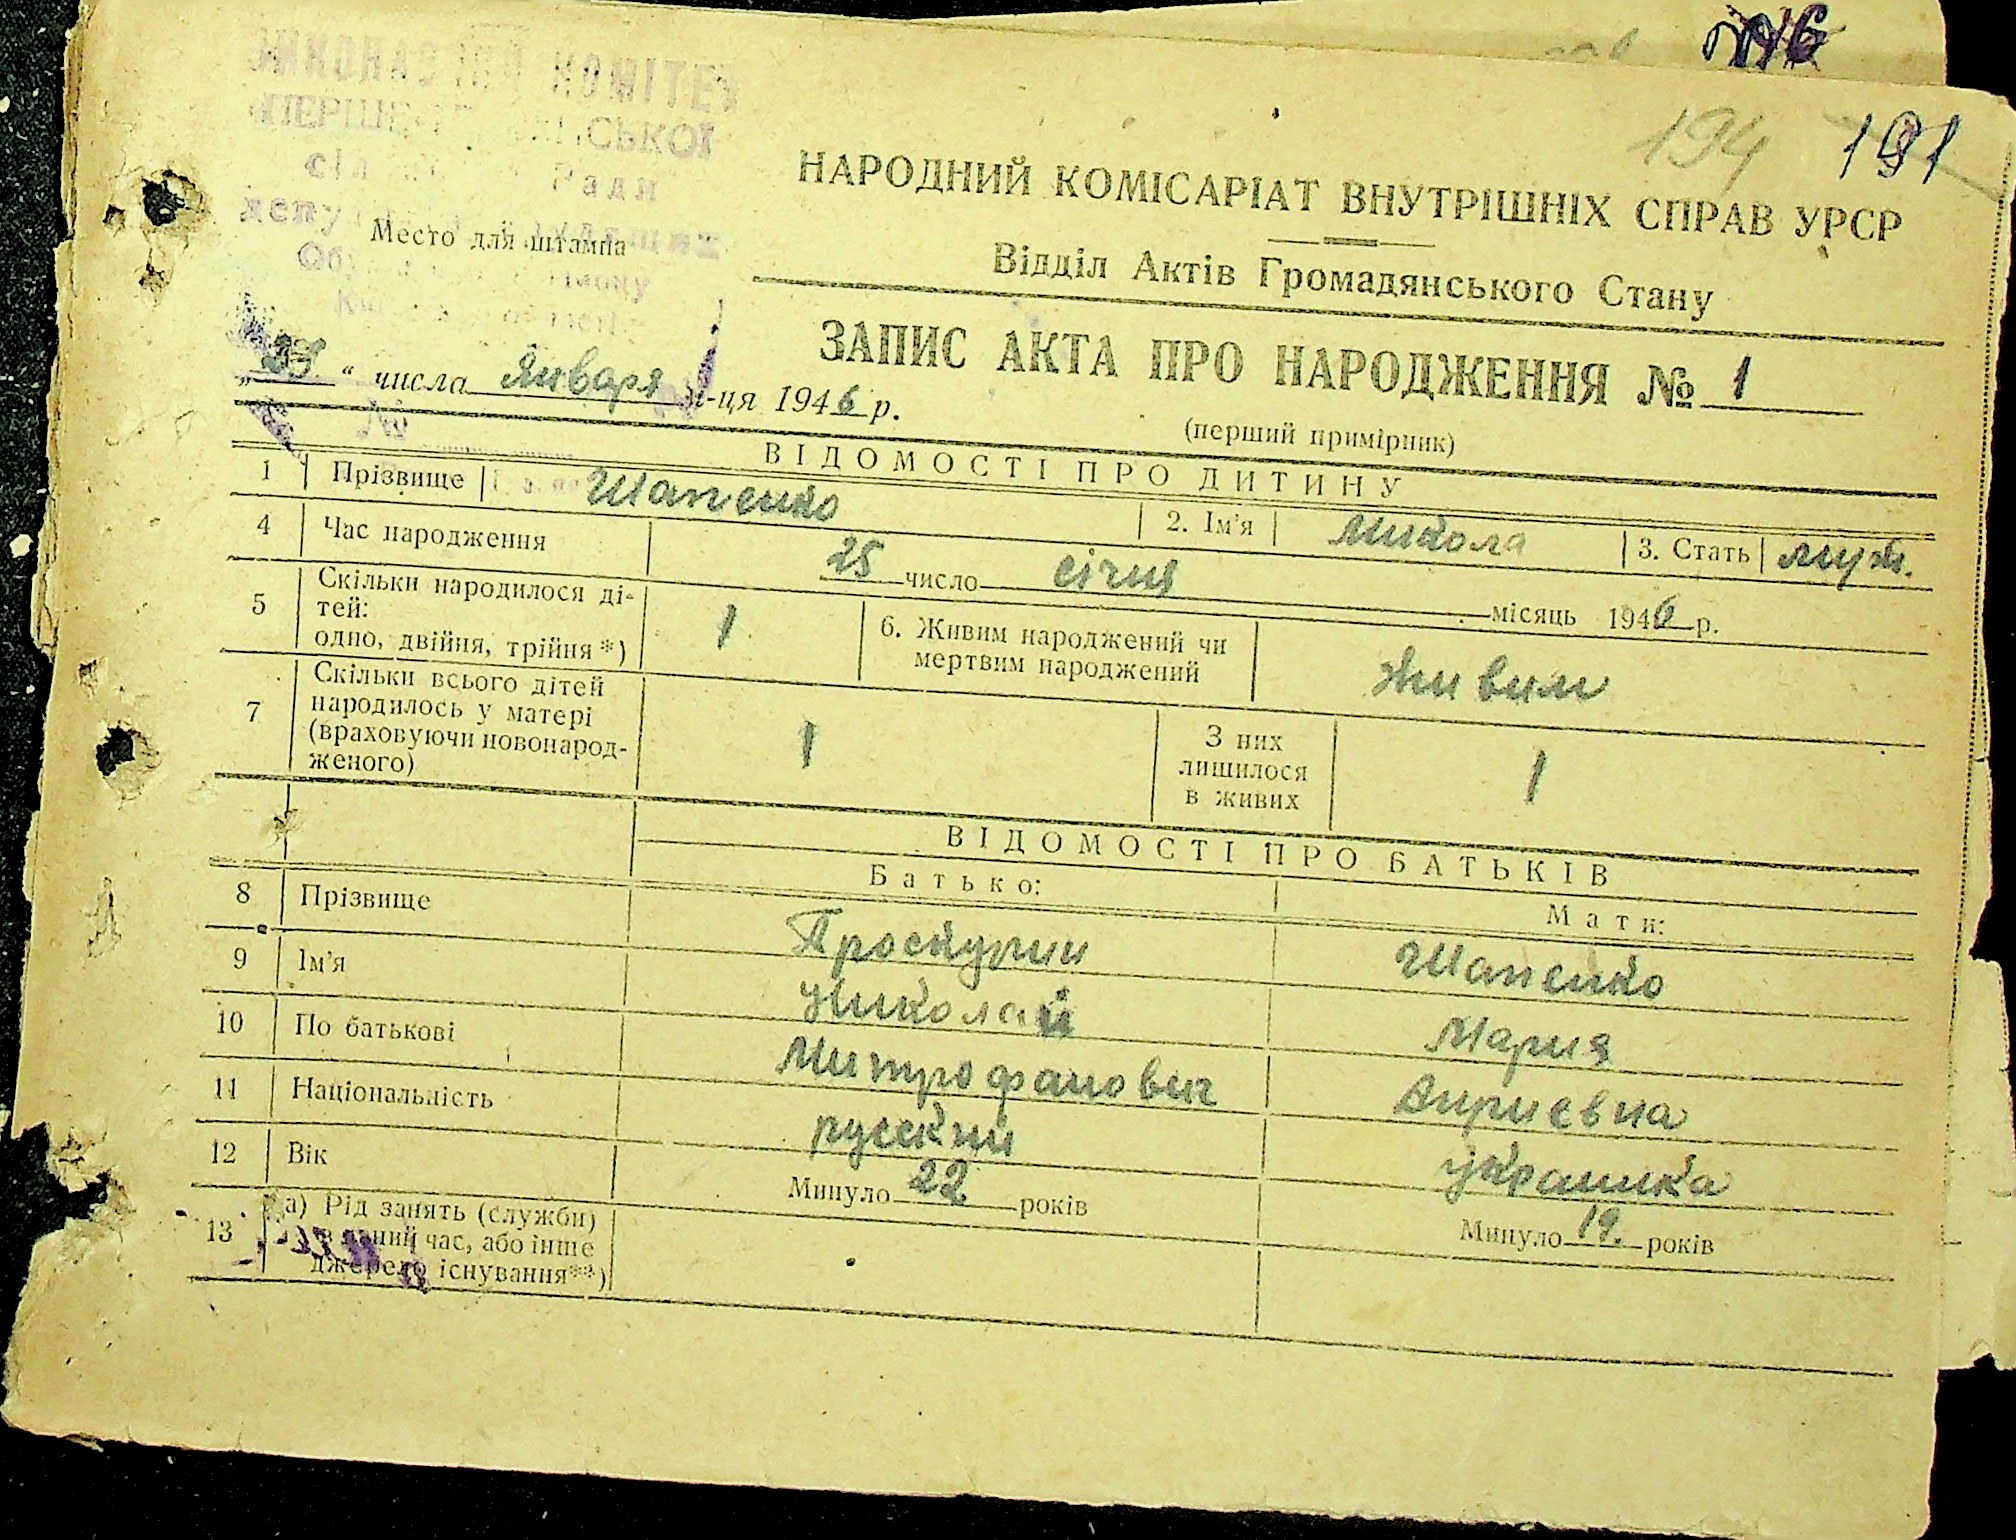 КОМІТЕТ
СЬКОЇ
Ради
Место для штампа
194 191
НАРОДНИЙ КОМІСАРІАТ ВНУТРІШНІХ СПРАВ УРСР
Відділ Актів Громадянського Стану
ЗАПИС АКТА ПРО НАРОДЖЕННЯ № 1
(перший примірник)
числа Января м-ця 1946 р.
ВІДОМОСТІ ПРО ДИТИНУ
1 Прізвище Шапенко 2. Ім'я Микола 3. Стать муж.
4 Час народження 25 число січня місяць 1946 р.
5 Скільки народилося ді-
тей:
одно, двійня, трійня *) 1 6. Живим народжений чи
мертвим народжений живим
7 Скільки всього дітей
народилось у матері
(враховуючи новонарод-
женого) 1 З них
лишилося
в живих 1
ВІДОМОСТІ ПРО БАТЬКІВ
Батько: Мати:
8 Прізвище Проскурин Шапенко
9 Ім'я Николай Мария
10 По батькові Митрофанович
11 Національність русский украинка
12 Вік Минуло 22 років Минуло 19. років
13 а) Рід занять (служби)
в даний час, або інше
джерело існування**)